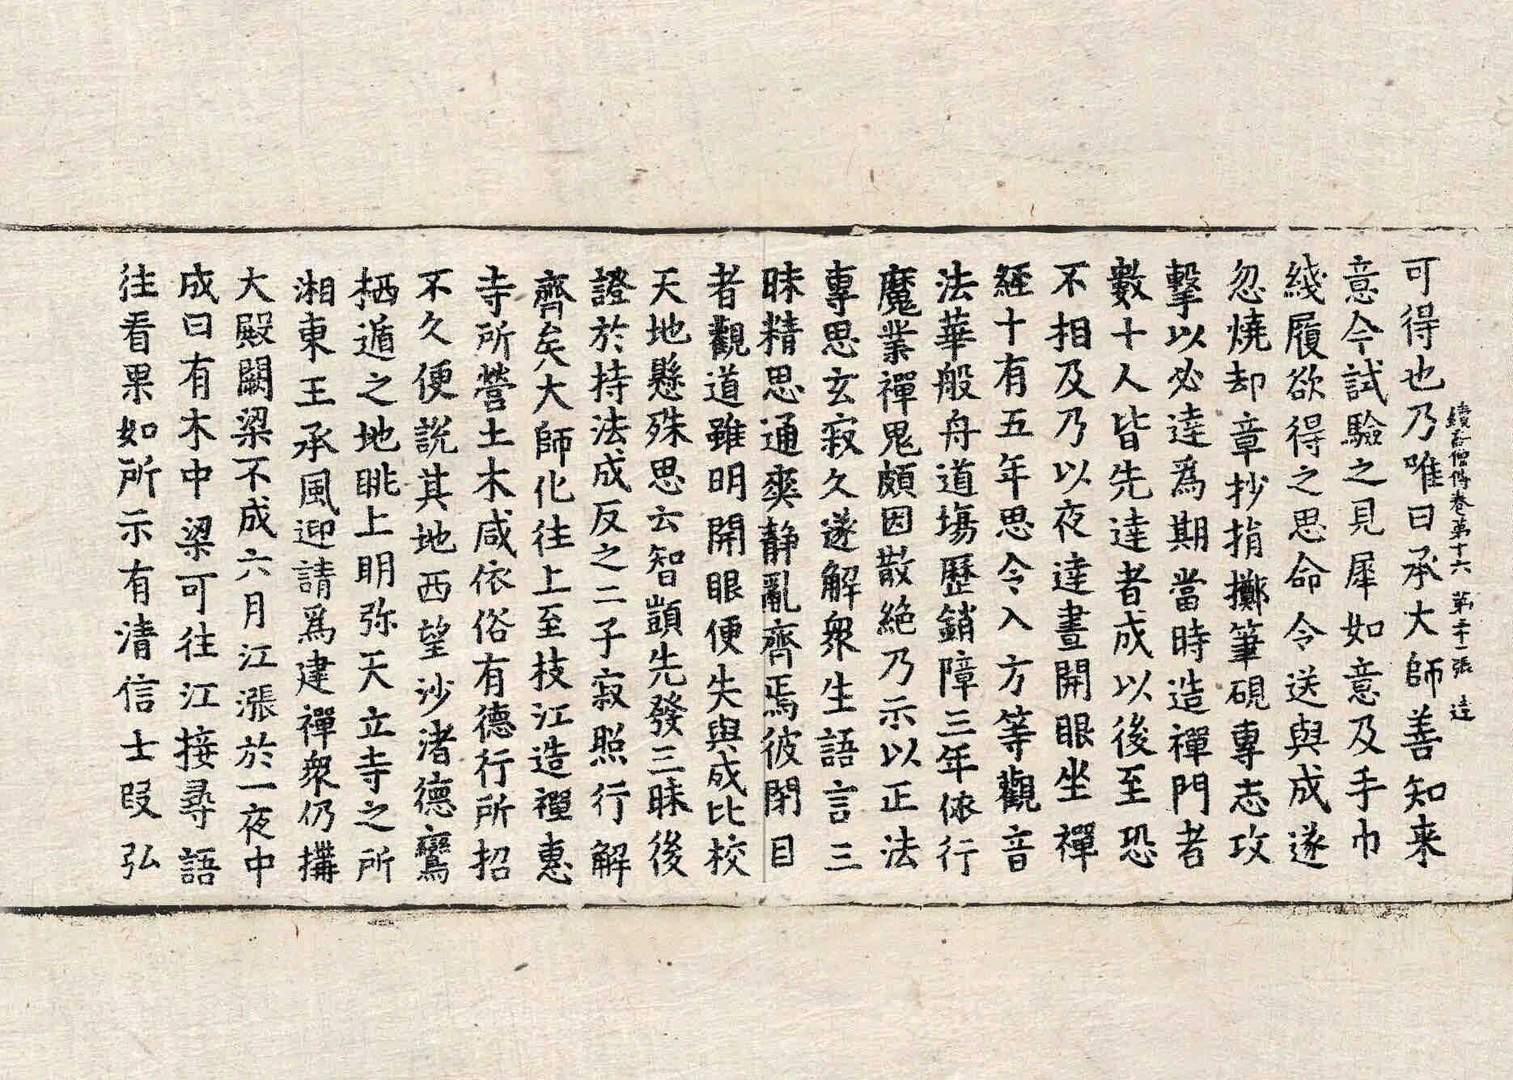 續高僧傳卷第十六 第二十一張 達
可得也乃唯曰承大師善知来
意令試驗之見犀如意及手巾
綫履欲得之思命令送與成遂
忽燒却章抄捐擲筆硯專志攻
擊以必達為期當時造禪門者
數十人皆先達者成以後至恐
不相及乃以夜達晝開眼坐禪
經十有五年思令入方等觀音
法華般舟道場歷銷障三年依行
魔業禪鬼頗因散絶乃示以正法
專思玄寂久遂解衆生語言三
昧精思通爽靜亂齊焉彼閉目
者觀道雖明開眼便失與成比校
天地懸殊思云智顗先發三昧後
證於持法成反之二子寂照行解
齊矣大師化往上至枝江造禪惠
寺所營土木咸依俗有德行所招
不久便說其地西望沙渚德鸞
栖遁之地眺上明弥天立寺之所
湘東王承風迎請為建禪衆仍搆
大殿闕梁不成六月江漲於一夜中
成曰有木中梁可往江接尋語
往看果如所示有清信士段弘